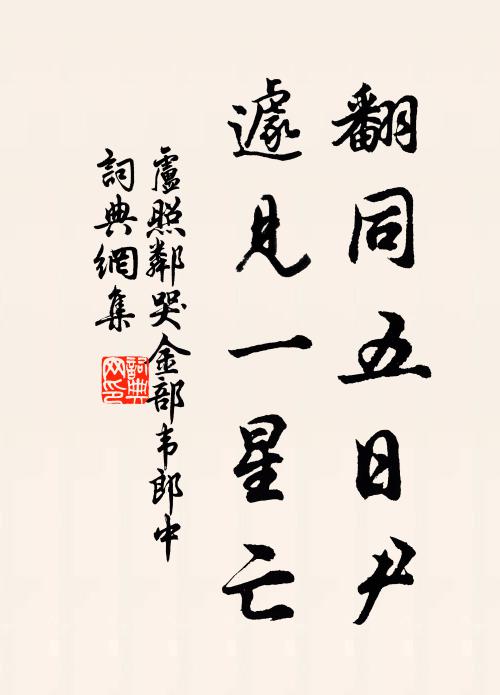 翻同五日尹
遽見一星亡
盧照鄰哭金部韦郎中
詞典網集
詞典网印